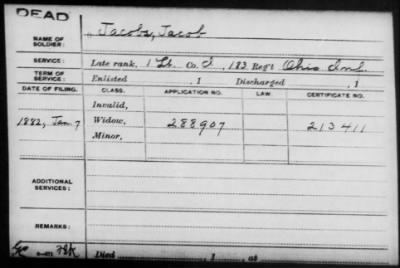 DEAD
NAME OF SOLDIER: Jacobs, Jacob
SERVICE: Late rank, 1 Lt. Co. I, 183 Reg't Ohio Inf.
TERM OF SERVICE: Enlisted , 1 Discharged , 1
DATE OF FILING. CLASS. APPLICATION NO. LAW. CERTIFICATE NO.
Invalid,
1882, Jan. 7 Widow, 288907 213411
Minor,
ADDITIONAL SERVICES:
REMARKS:
Died , 1 , at